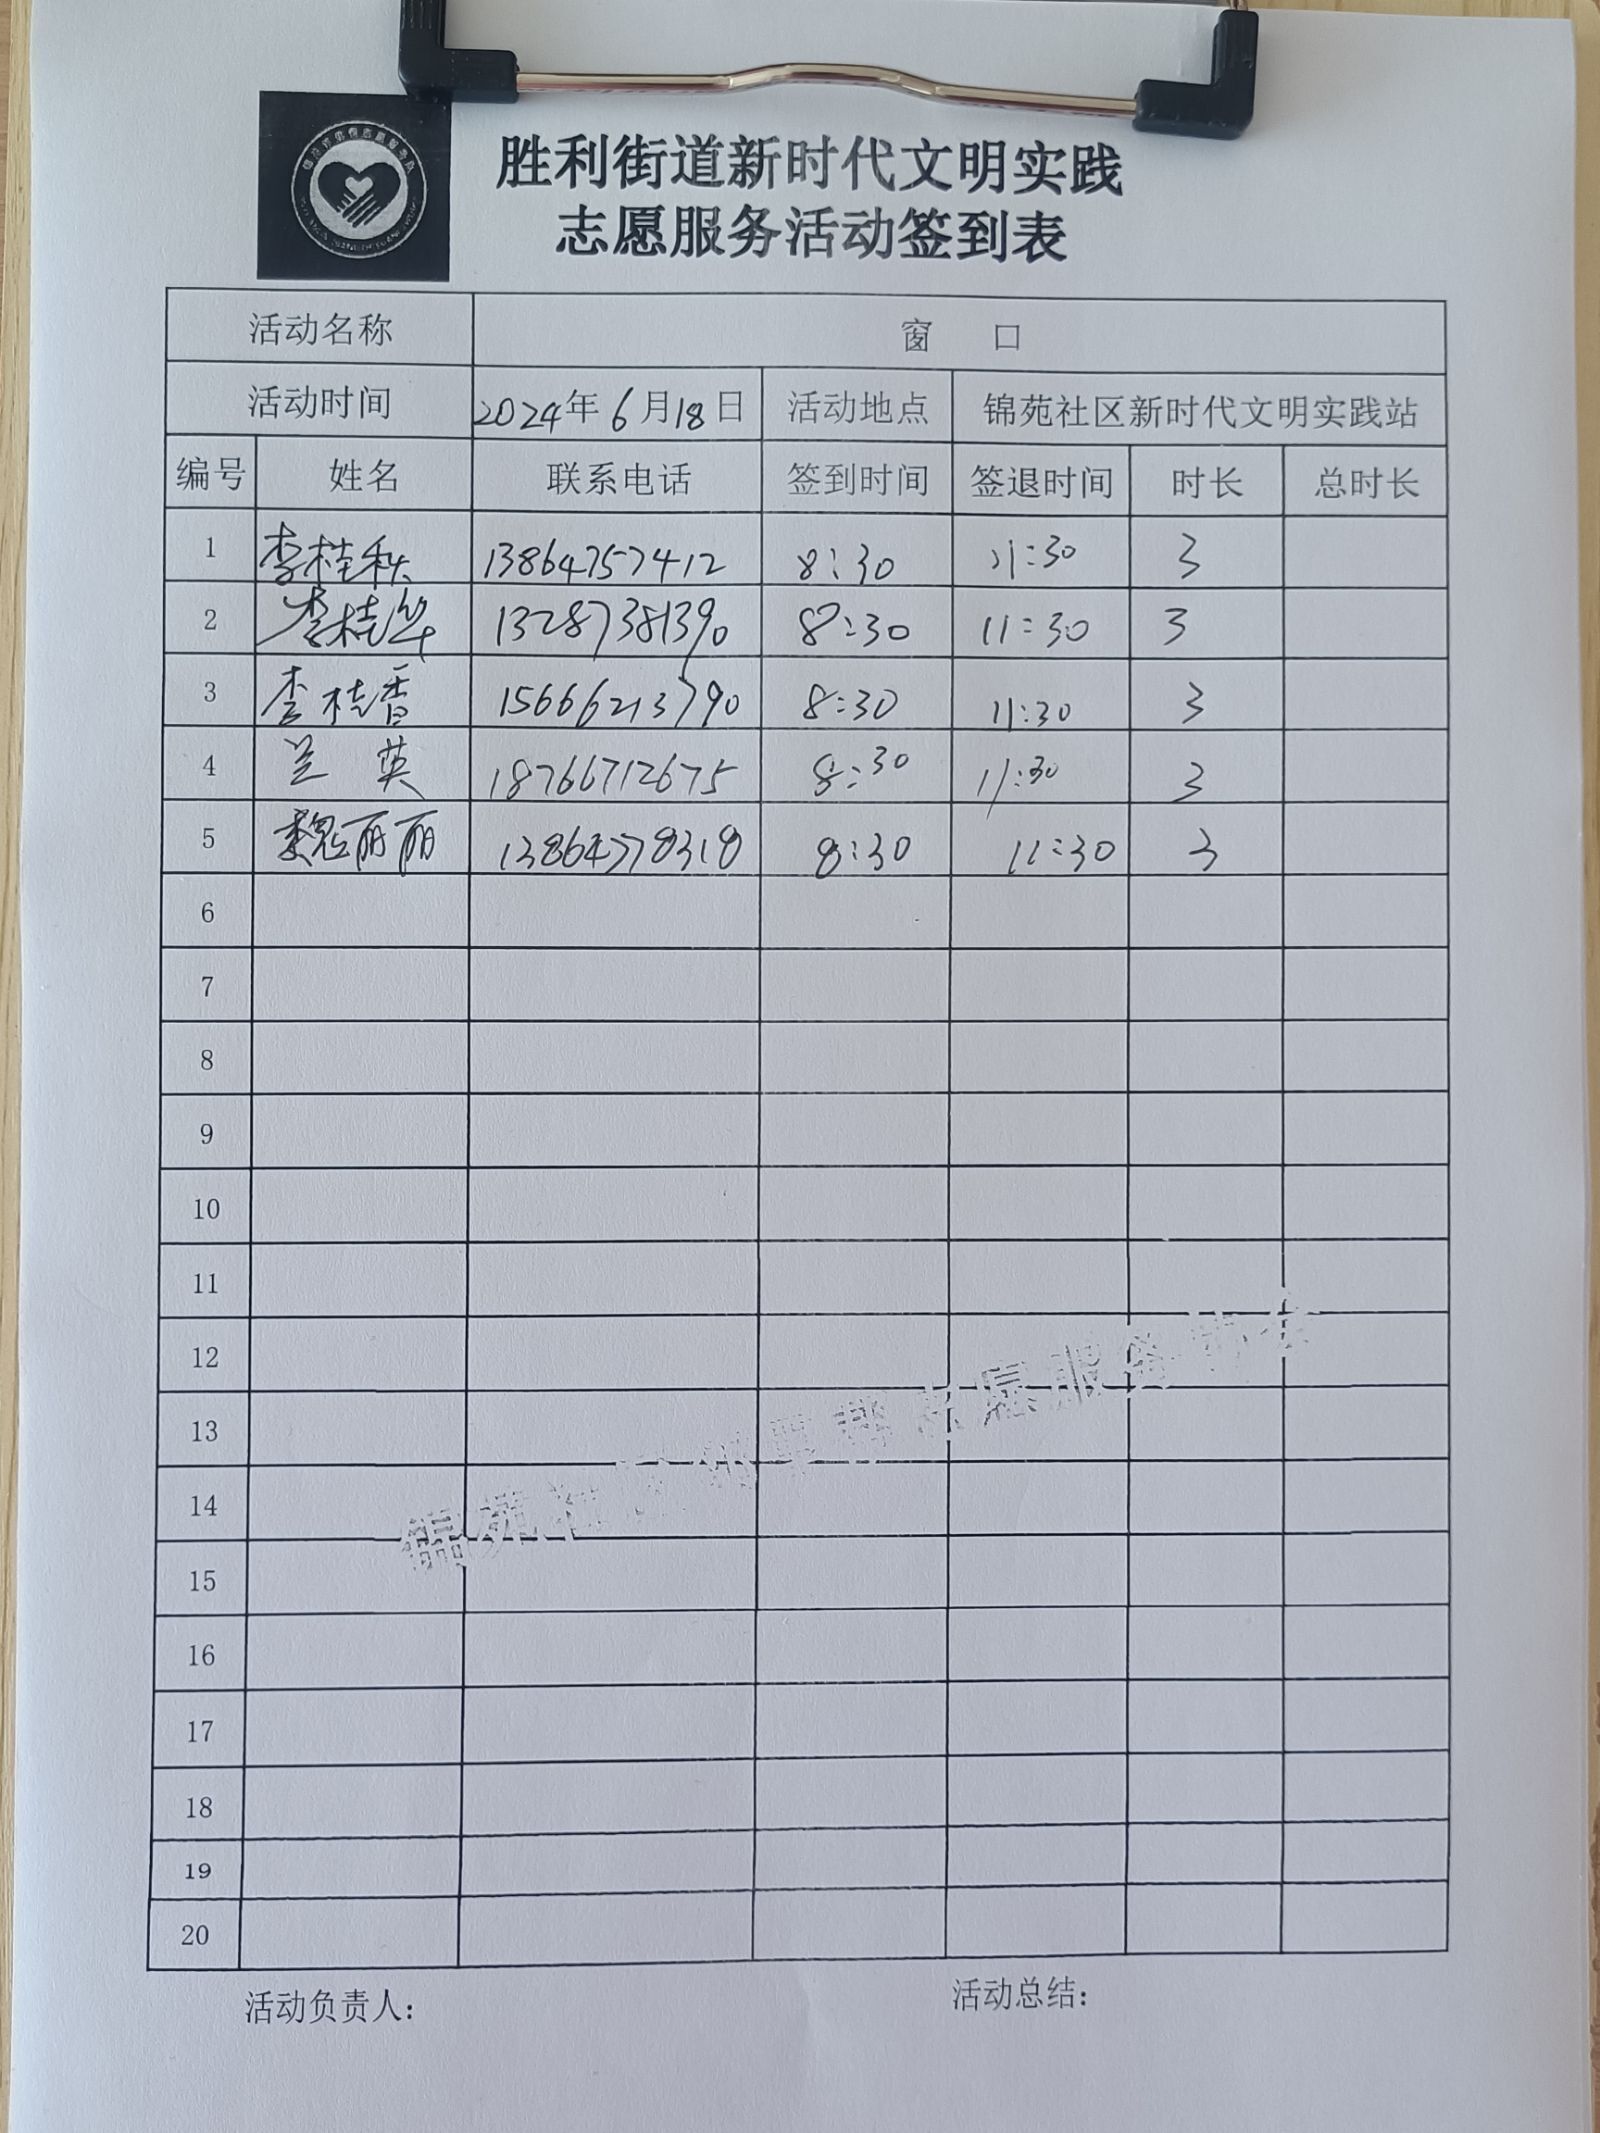 胜利街道新时代文明实践
志愿服务活动签到表
活动名称 窗 口
活动时间 2024年6月18日 活动地点 锦苑社区新时代文明实践站
编号 姓名 联系电话 签到时间 签退时间 时长 总时长
1 李桂秋 13864757412 8:30 11:30 3
2 李桂华 13287381390 8:30 11:30 3
3 李桂香 15666213790 8:30 11:30 3
4 兰英 18766712675 8:30 11:30 3
5 魏丽丽 13864778318 8:30 11:30 3
6
7
8
9
10
11
12
13
14
15
16
17
18
19
20
锦苑社区邻里帮志愿服务协会
活动负责人: 活动总结: